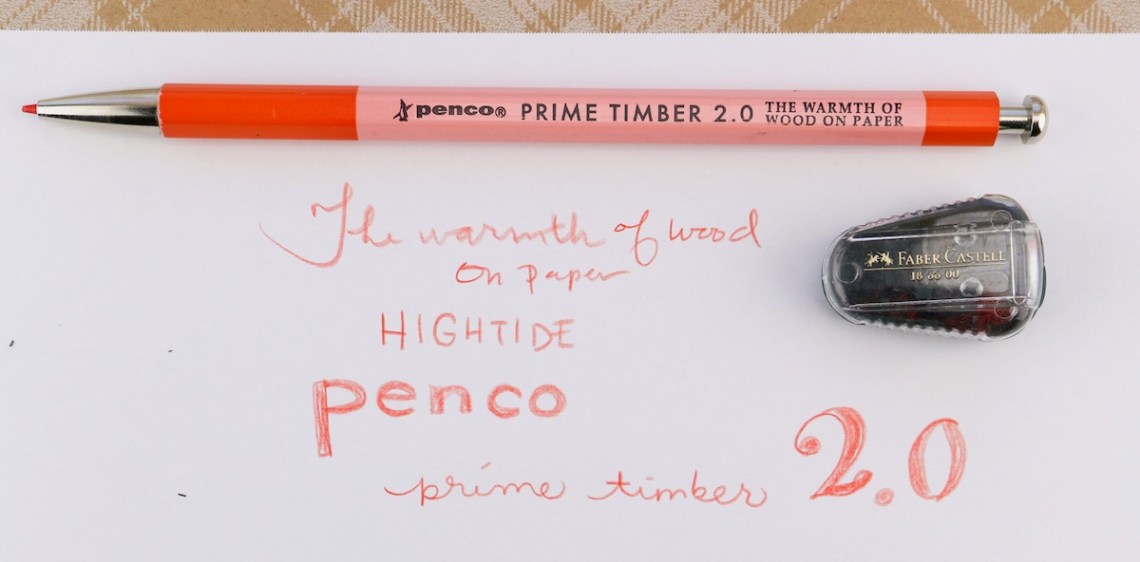 penco® PRIME TIMBER 2.0 THE WARMTH OF
WOOD ON PAPER
The warmth of wood
on paper
FABER CASTELL
18 66 00
HIGHTIDE
penco
prime timber 2.0